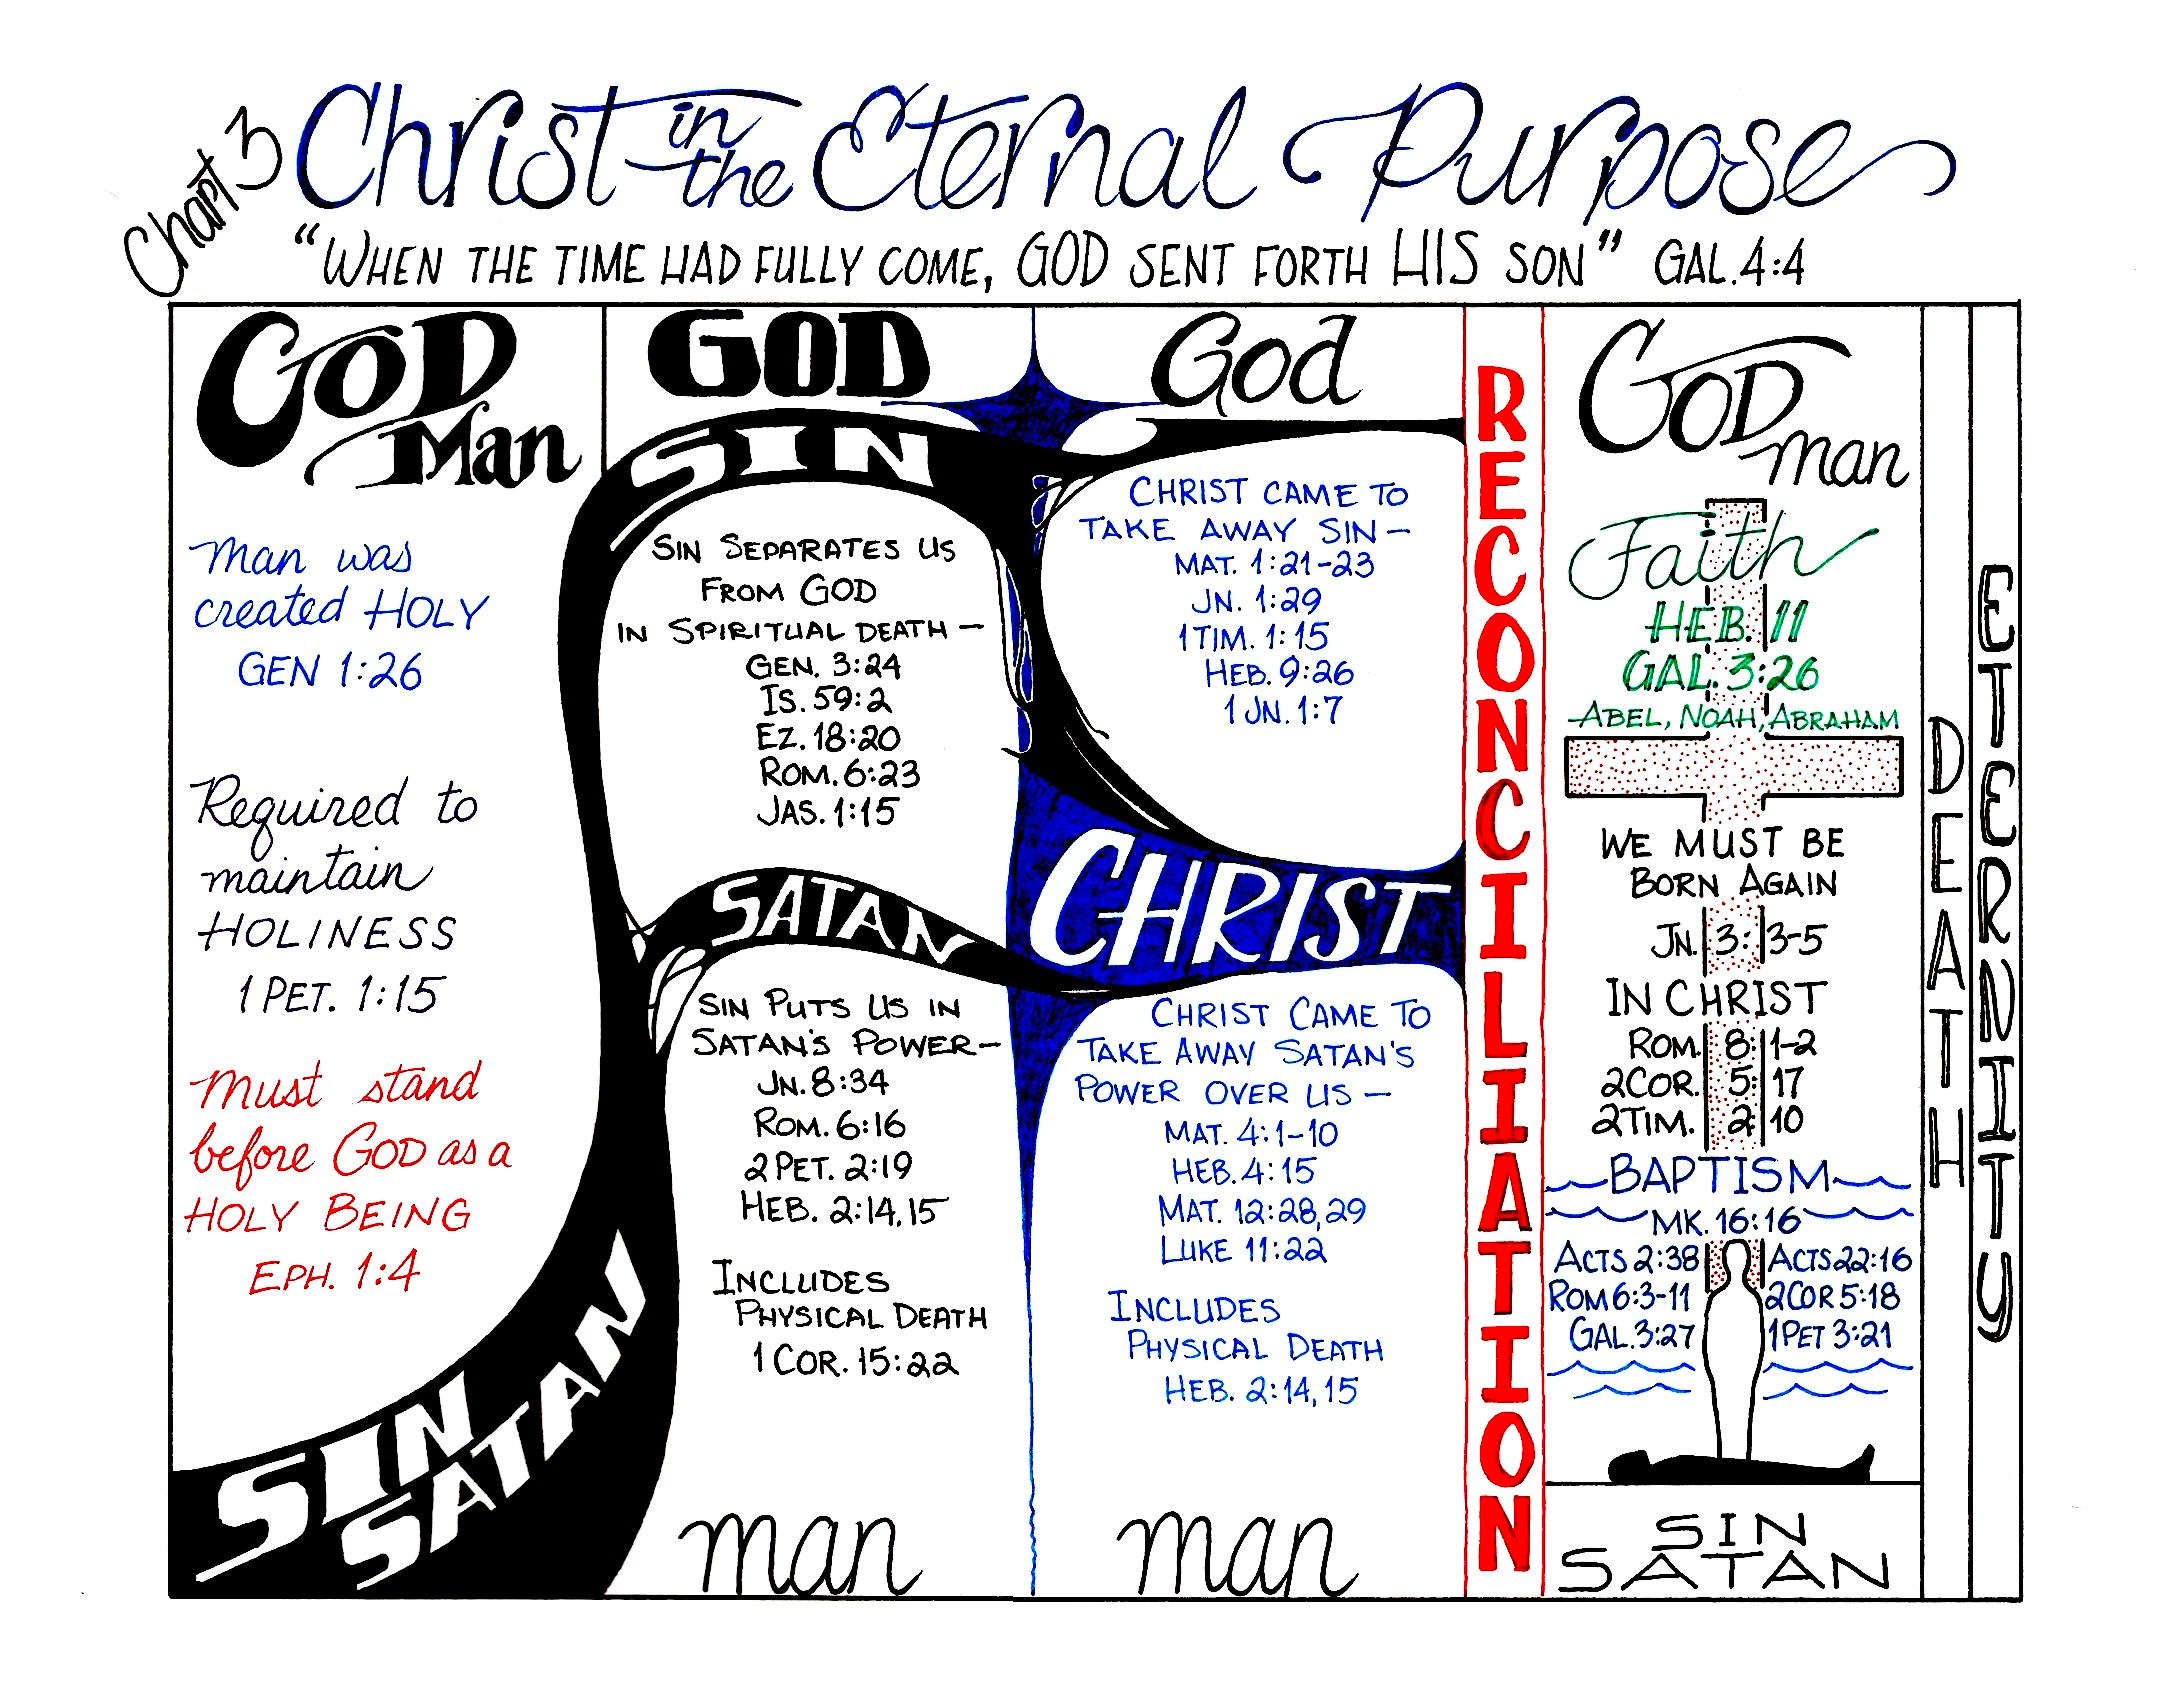 Chart 3
Christ in the Eternal Purpose
"WHEN THE TIME HAD FULLY COME, GOD SENT FORTH HIS SON" GAL. 4:4
GOD
Man
Man was
created HOLY
GEN 1:26
Required to
maintain
HOLINESS
1 PET. 1:15
Must stand
before GOD as a
HOLY BEING
EPH. 1:4
SIN
SATAN
GOD
SIN
SIN SEPARATES US
FROM GOD
IN SPIRITUAL DEATH—
GEN. 3:24
IS. 59:2
EZ. 18:20
ROM. 6:23
JAS. 1:15
SATAN
SIN PUTS US IN
SATAN'S POWER—
JN. 8:34
ROM. 6:16
2 PET. 2:19
HEB. 2:14,15
INCLUDES
PHYSICAL DEATH
1 COR. 15:22
man
God
CHRIST CAME TO
TAKE AWAY SIN—
MAT. 1:21-23
JN. 1:29
1 TIM. 1:15
HEB. 9:26
1 JN. 1:7
CHRIST
CHRIST CAME TO
TAKE AWAY SATAN'S
POWER OVER US—
MAT. 4:1-10
HEB. 4:15
MAT. 12:28,29
LUKE 11:22
INCLUDES
PHYSICAL DEATH
HEB. 2:14,15
man
RECONCILIATION
GOD
man
Faith
HEB. 11
GAL. 3:26
ABEL, NOAH, ABRAHAM
WE MUST BE
BORN AGAIN
JN. 3:3-5
IN CHRIST
ROM. 8:1-2
2 COR. 5:17
2 TIM. 2:10
BAPTISM
MK. 16:16
ACTS 2:38 ACTS 22:16
ROM 6:3-11 2 COR 5:18
GAL. 3:27 1 PET 3:21
SIN
SATAN
DEATH
ETERNITY